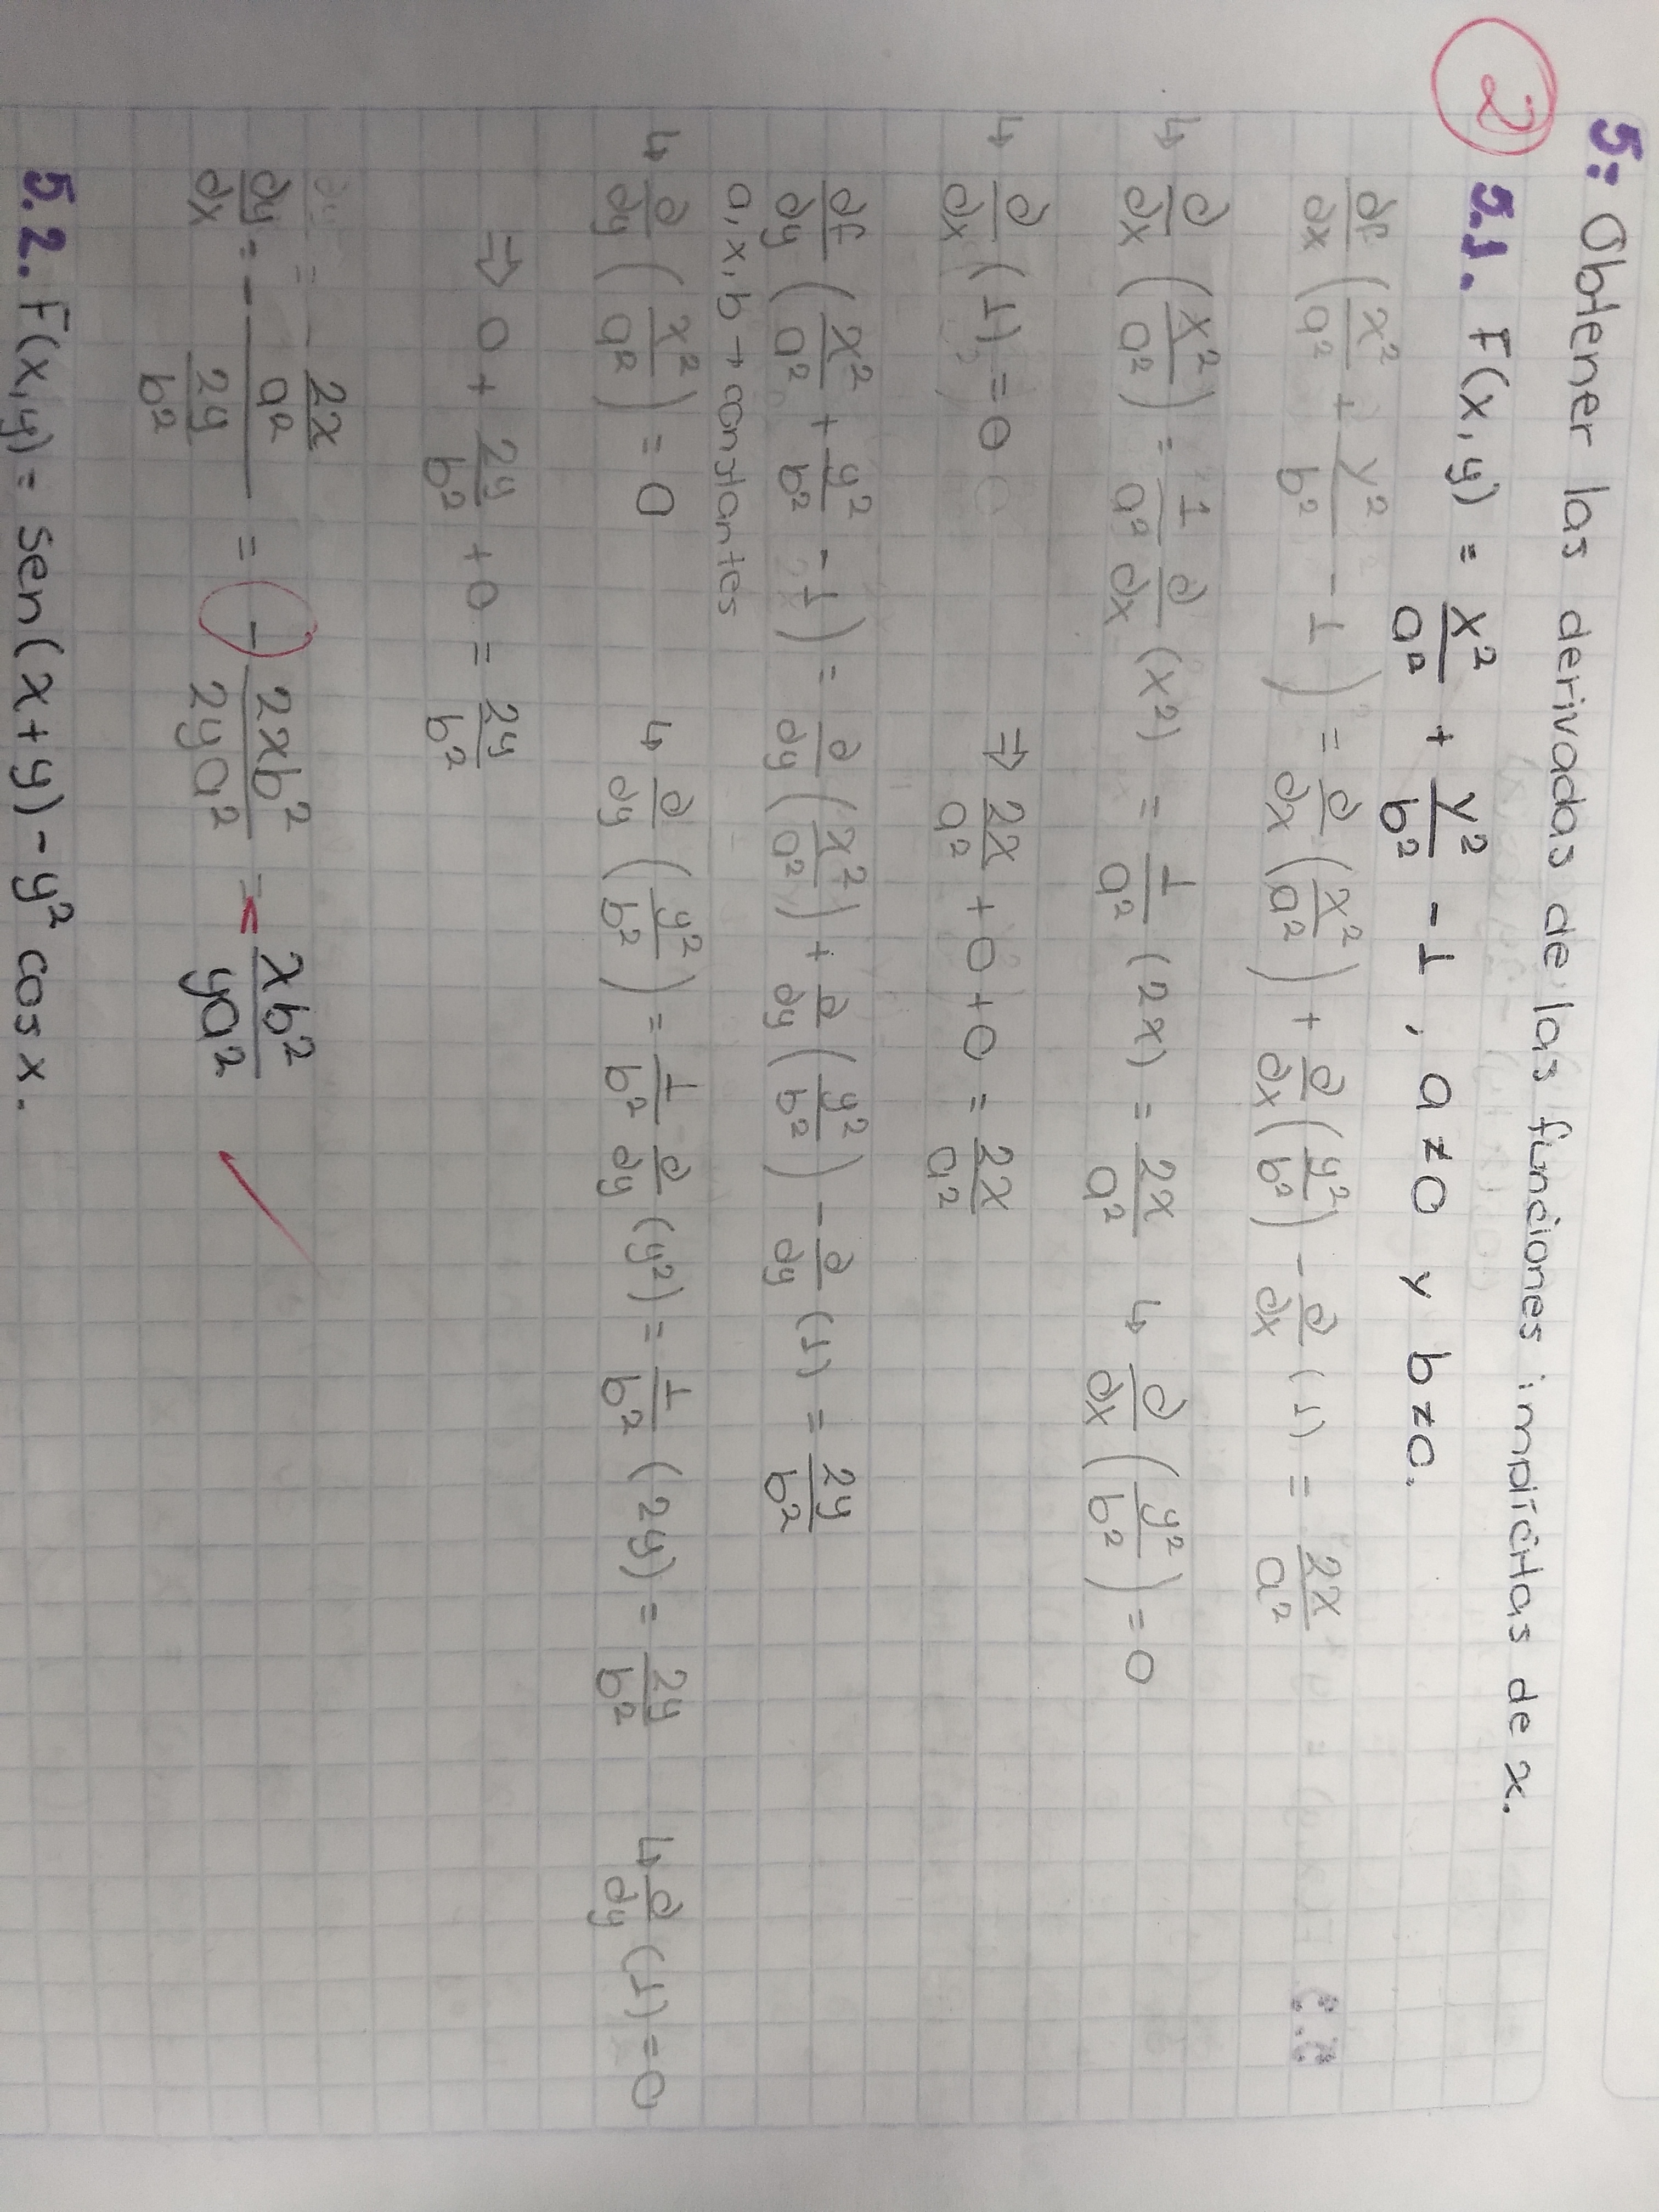 5: Obtener las derivadas de las funciones implícitas de x.
2
5.1. F(x,y) = x²/a² + y²/b² - 1, a≠0 y b≠0.
∂f/∂x (x²/a² + y²/b² - 1) = ∂/∂x (x²/a²) + ∂/∂x (y²/b²) - ∂/∂x (1) = 2x/a²
↳ ∂/∂x (x²/a²) = 1/a² ∂/∂x (x²) = 1/a² (2x) = 2x/a² ↳ ∂/∂x (y²/b²) = 0
↳ ∂/∂x (1) = 0 ⇒ 2x/a² + 0 + 0 = 2x/a²
∂f/∂y (x²/a² + y²/b² - 1) = ∂/∂y (x²/a²) + ∂/∂y (y²/b²) - ∂/∂y (1) = 2y/b²
a, x, b → constantes
↳ ∂/∂y (x²/a²) = 0 ↳ ∂/∂y (y²/b²) = 1/b² ∂/∂y (y²) = 1/b² (2y) = 2y/b² ↳ ∂/∂y (1) = 0
⇒ 0 + 2y/b² + 0 = 2y/b²
∂y/∂x = - (2x/a²)/(2y/b²) = - 2xb²/2ya² = - xb²/ya² ✓
5.2. F(x,y) = sen(x+y) - y² cos x.